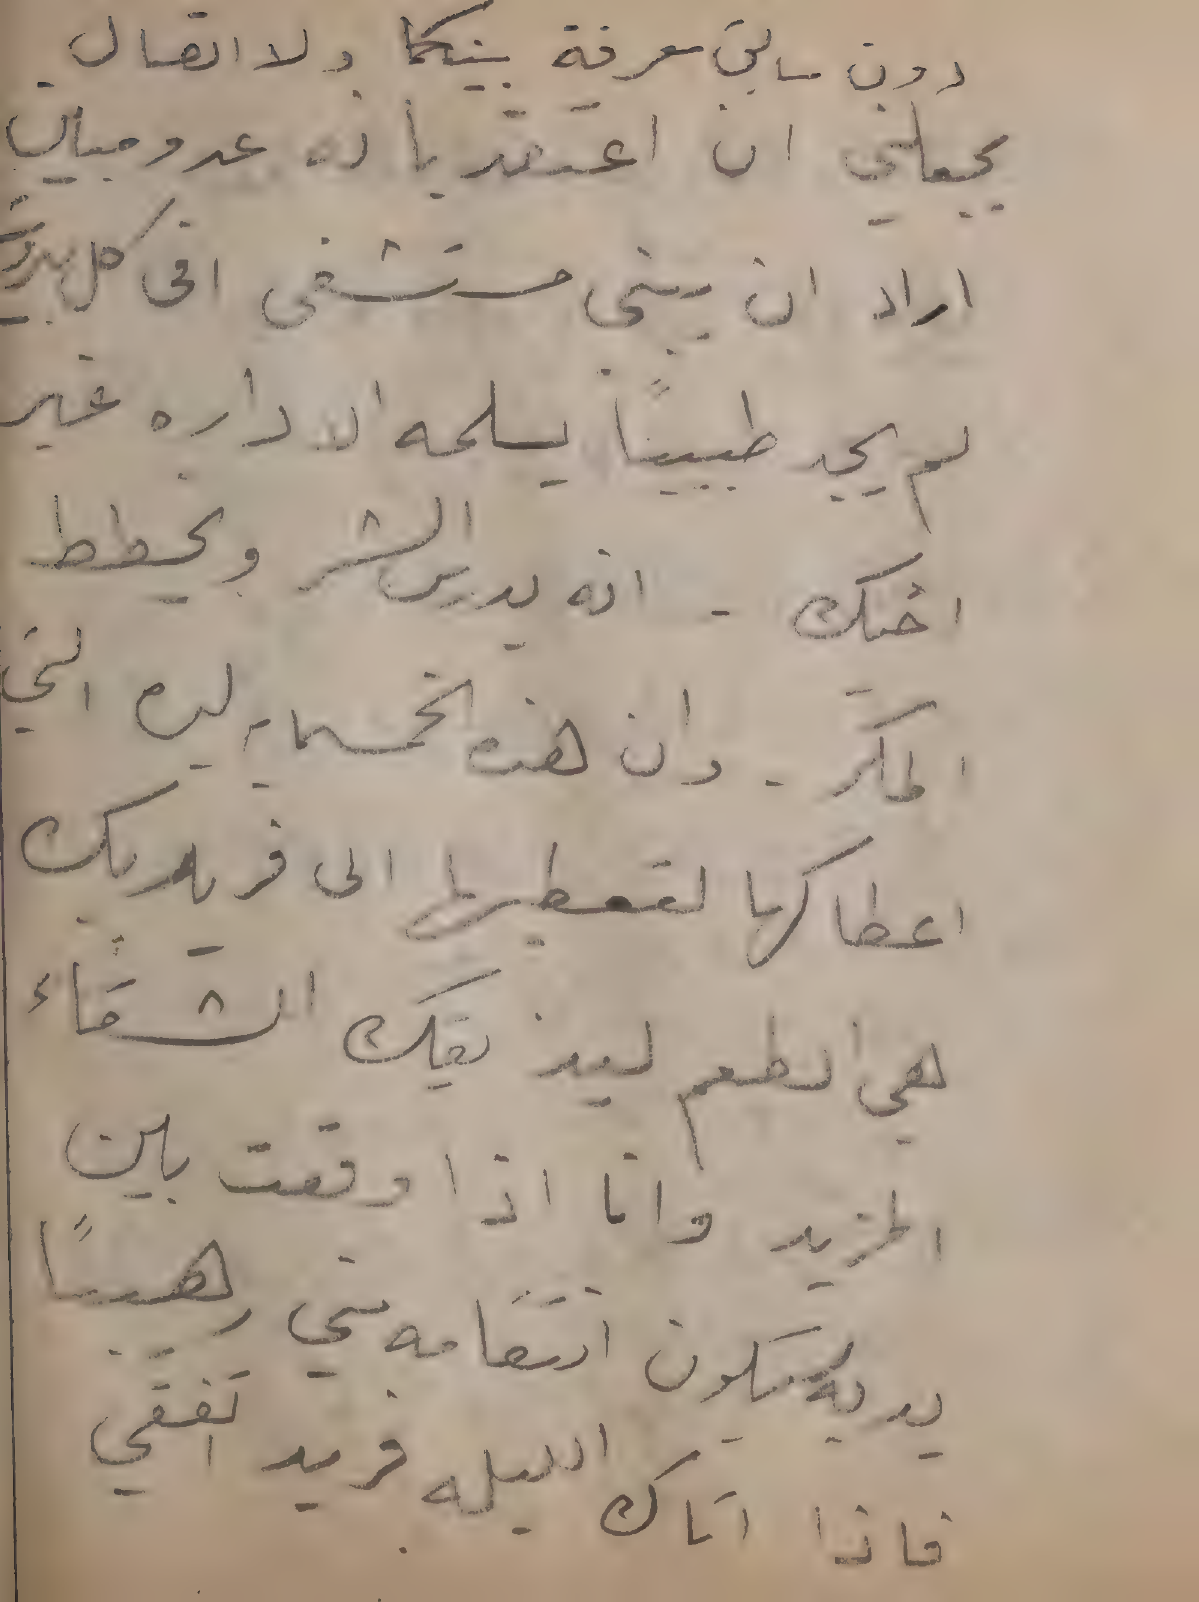 دون سابق معرفة بينكما ولا اتصال
يجعلني ان اعتقد بانه عدو مبين
اراد ان يبني مستشفى افي كل بيروت
لم يجد طبيباً يسلمه الاداره غير
اخيك - انه يدرس الشر ويخطط
المكر - وان هذه الخمسمايه ليره التي
اعطاكها لتعطيها الى فريد بك
هي الطعم ليذيقك الشقاء
المزيد وانا اذا وقعت بين
يديه سيكون انتقامه مني رهيباً
فاذا اتاك الليله فريد اتفقي